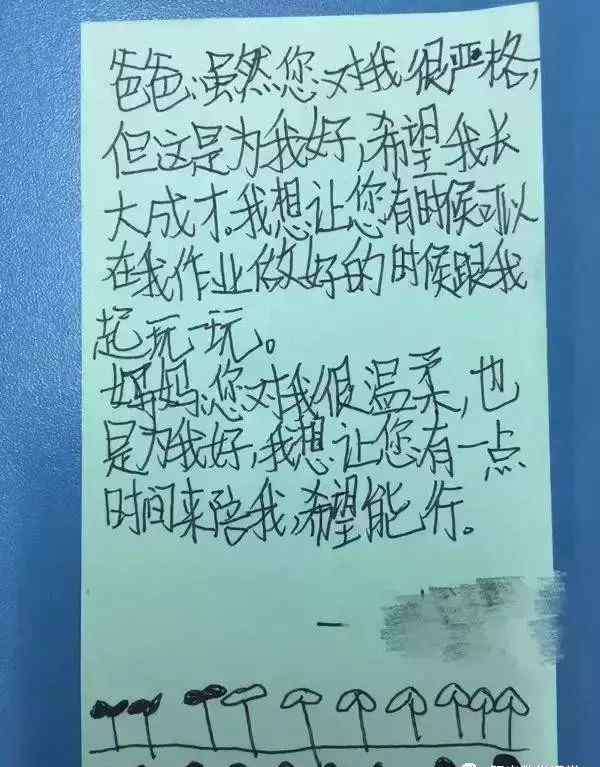 爸爸，虽然您对我很严格，
但这是为我好，希望我长
大成才。我想让您有时候可以
在我作业做好的时候跟我
起玩一玩。
妈妈，您对我很温柔，也
是为我好，我想让您有一点
时间来陪我，希望能行。